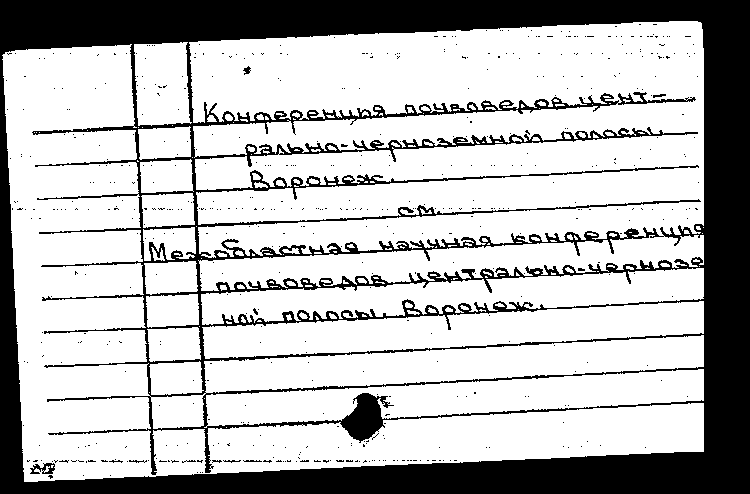 Конференция почвоведов цент-
рально-черноземной полосы.
Воронеж.
см.
Межобластная научная конференция
почвоведов центрально-чернозе
ной полосы. Воронеж.